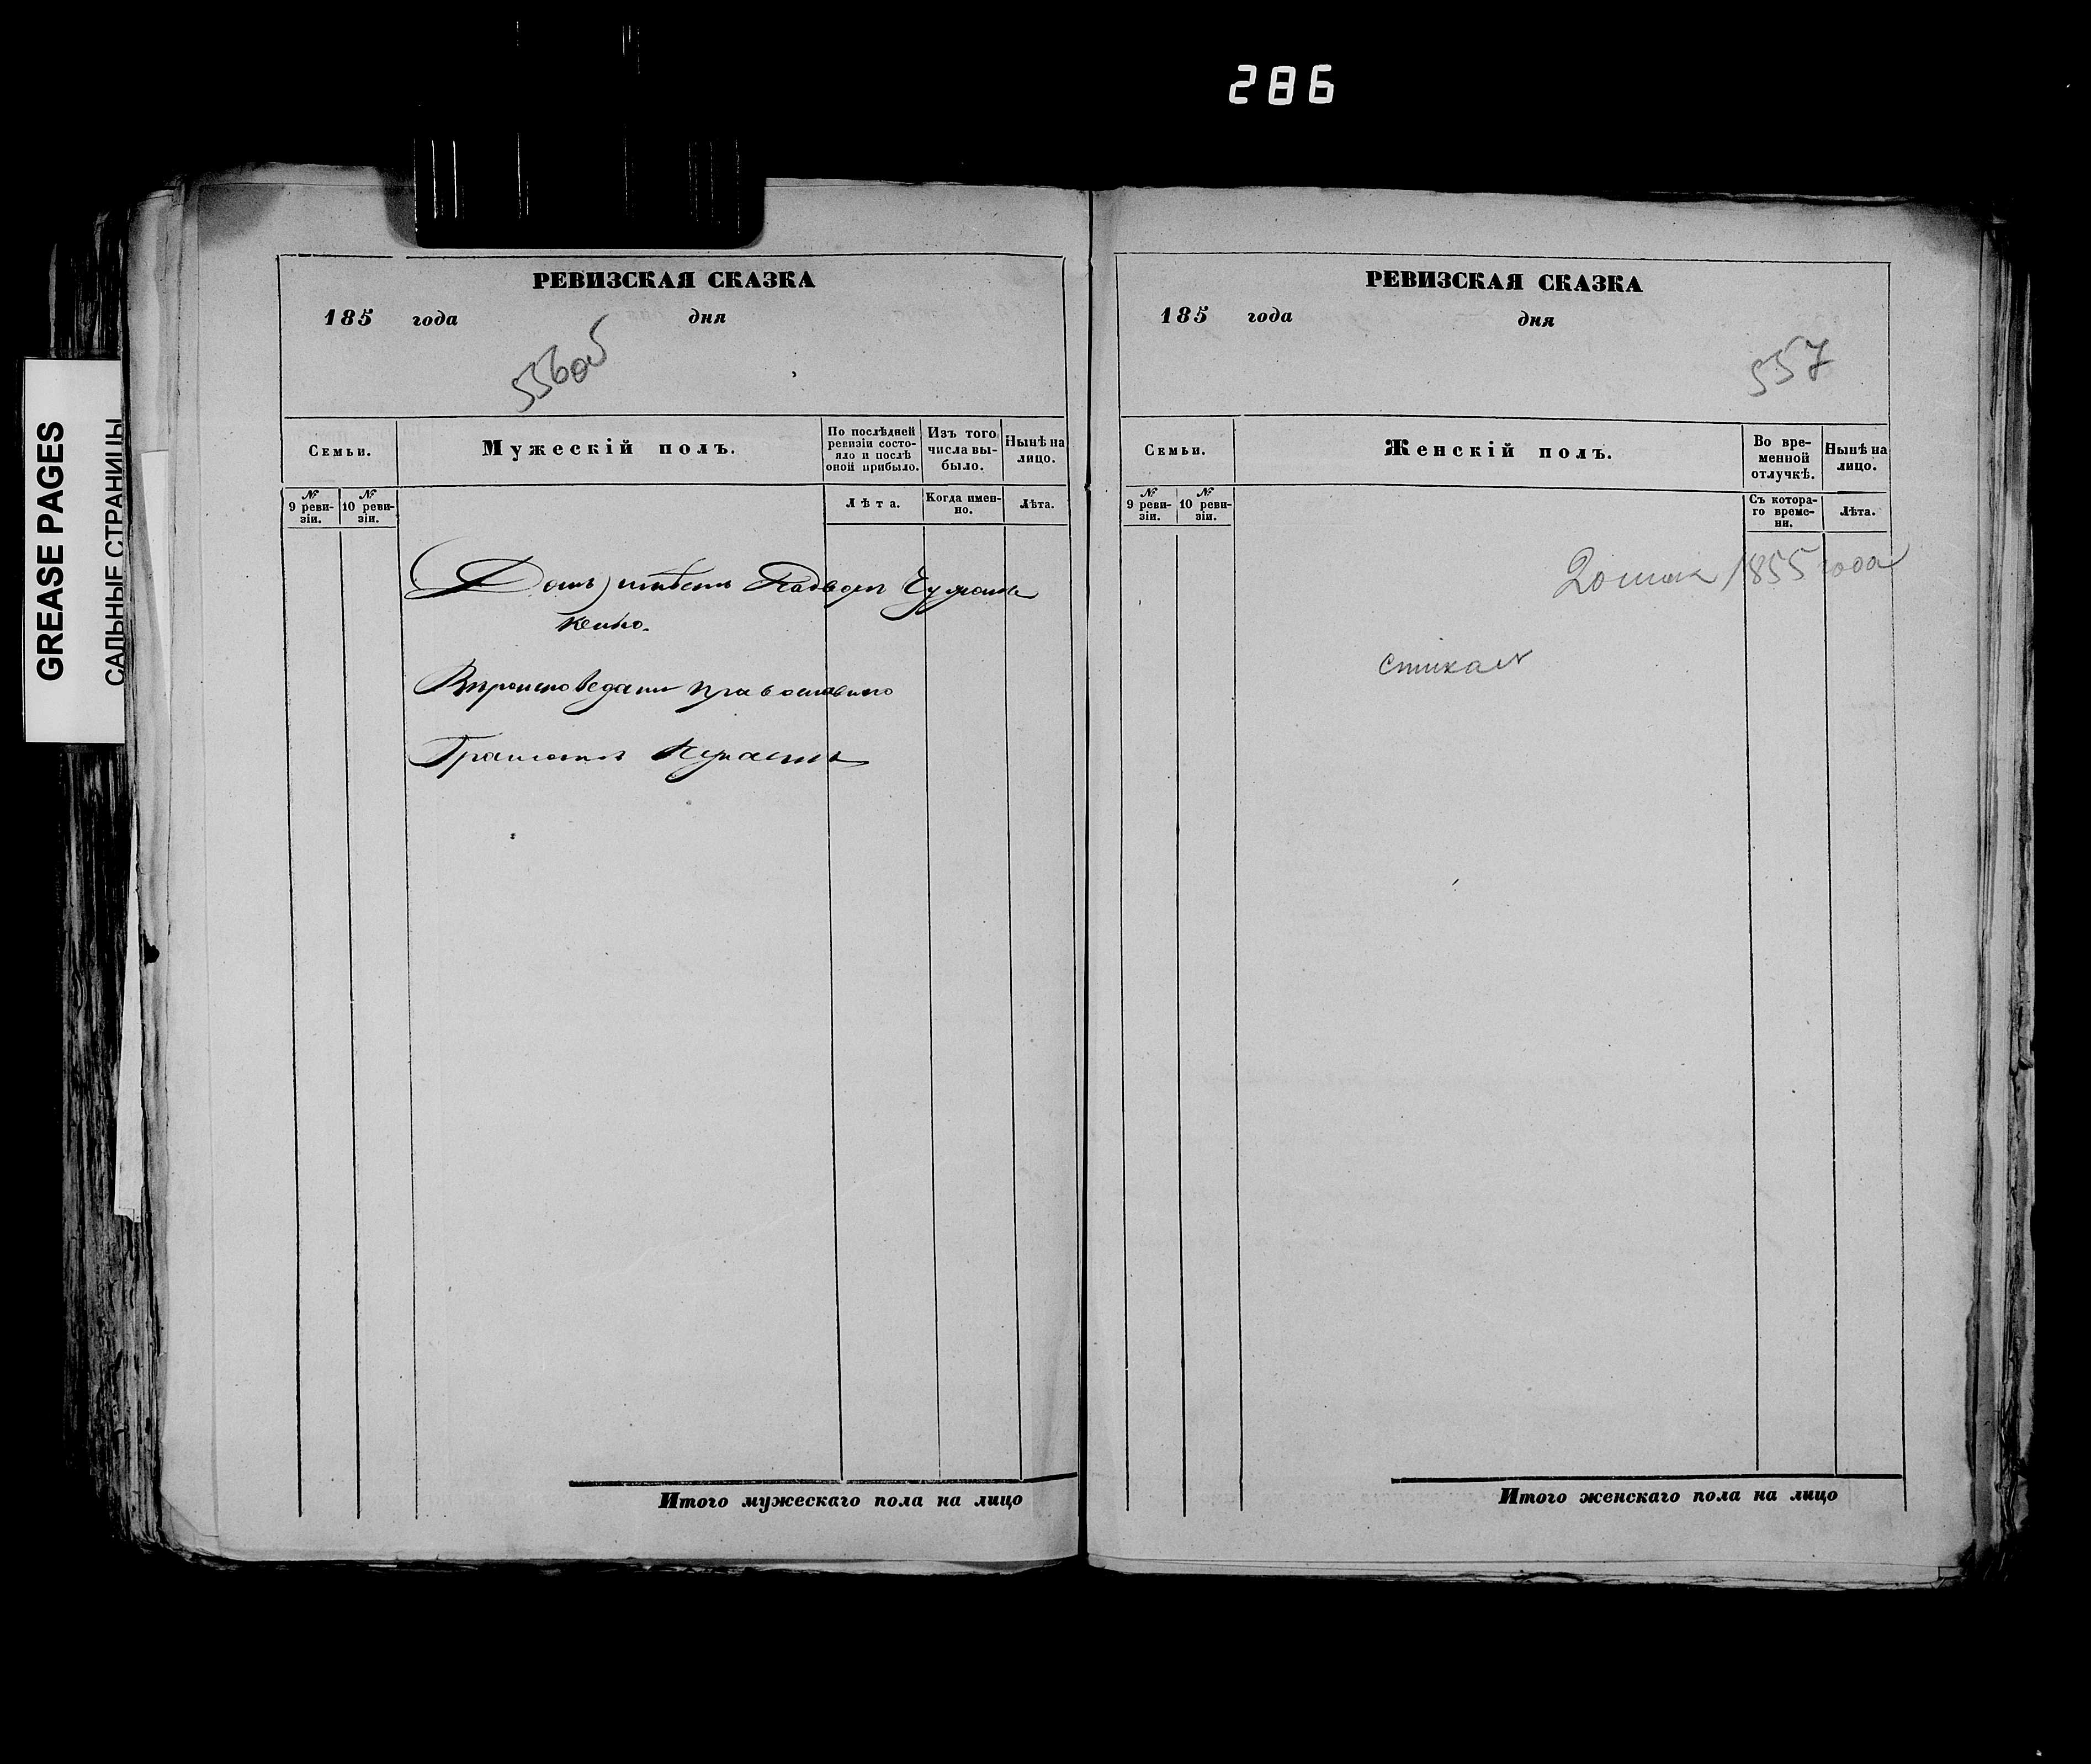 286
GREASE PAGES
САЛЬНЫЕ СТРАНИЦЫ
РЕВИЗСКАЯ СКАЗКА
185 года дня
556об
Семьи.
Мужескій полъ.
По послѣдней ревизіи состо-
яло и послѣ
оной прибыло.
Изъ того
числа вы-
было.
Нынѣ на
лицо.
№
9 реви-
зіи.
№
10 реви-
зіи.
Лѣта.
Когда имен-
но.
Лѣта.
кенко.
Вѣроисповеданія православнаго
Итого мужескаго пола на лицо
РЕВИЗСКАЯ СКАЗКА
185 года дня
557
Семьи.
Женскій полъ.
Во вре-
менной
отлучкѣ.
Нынѣ на
лицо.
№
9 реви-
зіи.
№
10 реви-
зіи.
Съ котора-
го време-
ни.
Лѣта.
1855 года
Итого женскаго пола на лицо